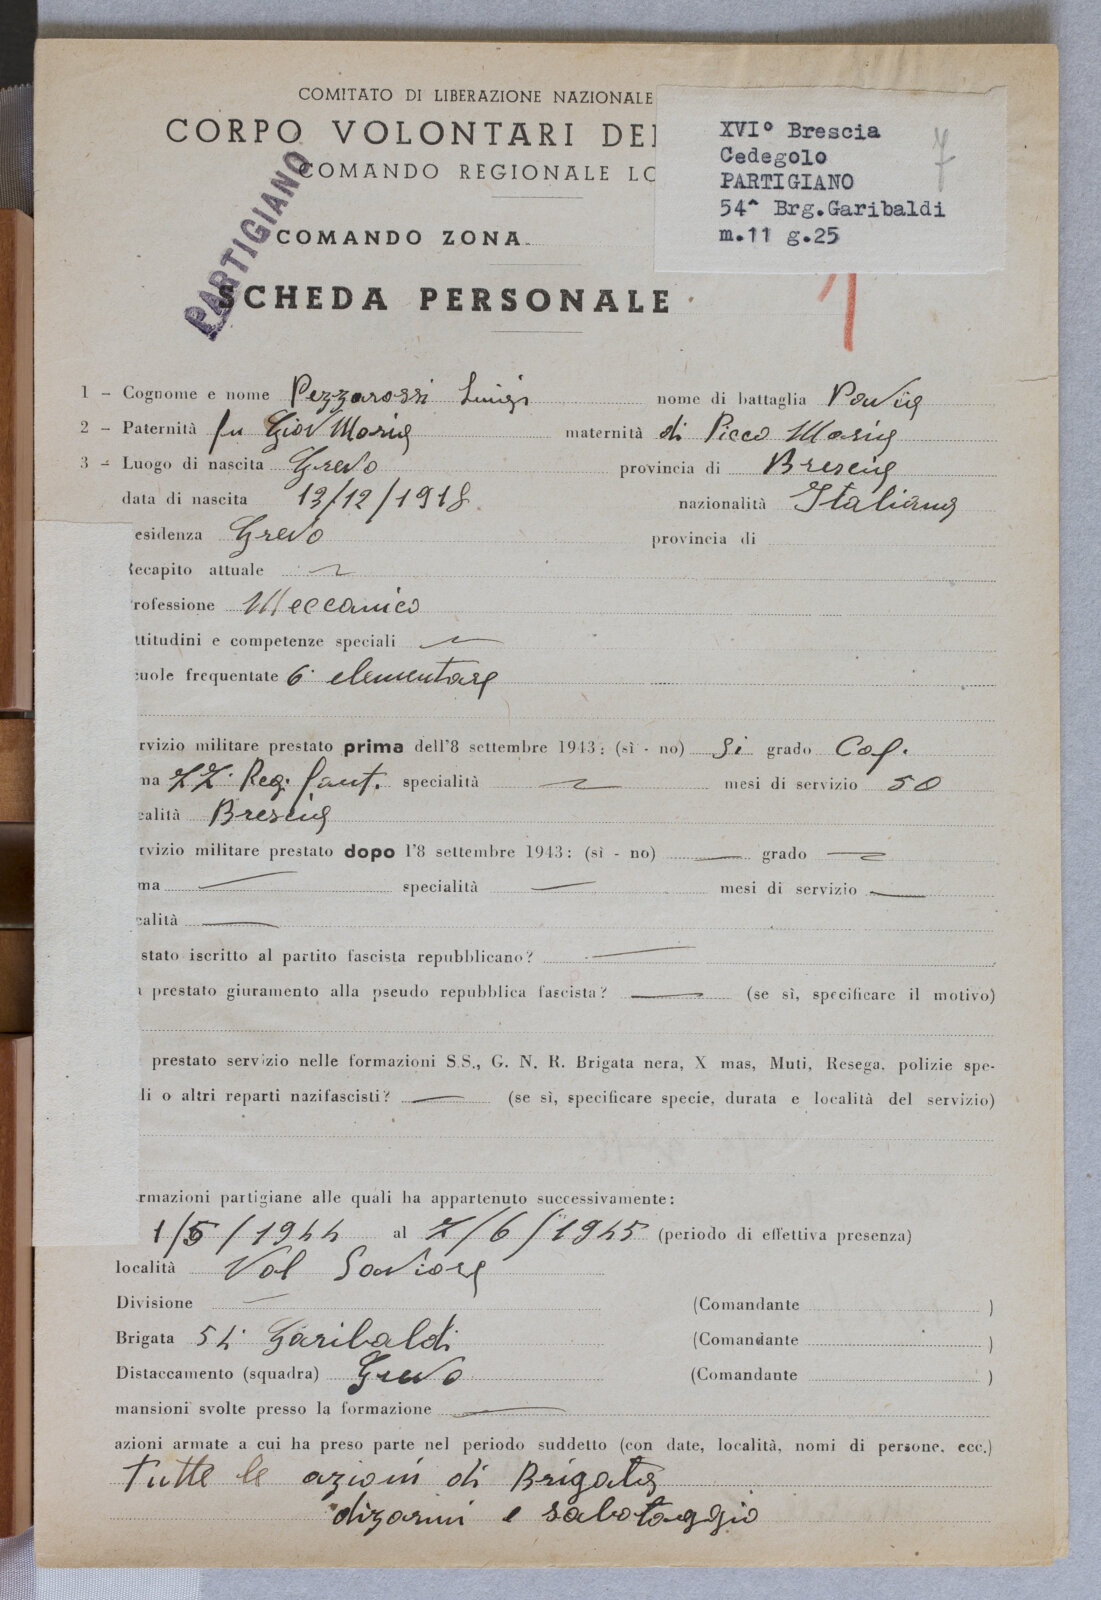 COMITATO DI LIBERAZIONE NAZIONALE
CORPO VOLONTARI DE
COMANDO REGIONALE LO
XVI° Brescia
Cedegolo
PARTIGIANO
54^ Brg.Garibaldi
m.11 g.25
7
PARTIGIANO
COMANDO ZONA
SCHEDA PERSONALE
1 - Cognome e nome Pezzarossi Luigi nome di battaglia
2 - Paternità fu Giov Maria maternità di Picco Maria
3 - Luogo di nascita Grevo provincia di Brescia
data di nascita 13/12/1918 nazionalità Italiana
esidenza Grevo provincia di
Recapito attuale
rofessione Meccanico
ttitudini e competenze speciali
uole frequentate 6° elementare
rvizio militare prestato prima dell'8 settembre 1943: (sì - no) Si grado Cap.
ma 77° Reg. fant. specialità mesi di servizio 50
calità Brescia
rvizio militare prestato dopo l'8 settembre 1943: (sì - no) — grado —
ma — specialità — mesi di servizio —
calità —
stato iscritto al partito fascista repubblicano? —
prestato giuramento alla pseudo repubblica fascista? — (se sì, specificare il motivo)
prestato servizio nelle formazioni S.S., G. N. R. Brigata nera, X mas, Muti, Resega, polizie spe-
li o altri reparti nazifascisti? — (se sì, specificare specie, durata e località del servizio)
rmazioni partigiane alle quali ha appartenuto successivamente:
1/5/1944 al 7/6/1945 (periodo di effettiva presenza)
località Val Saviore
Divisione — (Comandante )
Brigata 54° Garibaldi (Comandante )
Distaccamento (squadra) Grevo (Comandante )
mansioni svolte presso la formazione —
azioni armate a cui ha preso parte nel periodo suddetto (con date, località, nomi di persone, ecc.)
Tutte le azioni di Brigata
dizarmi e sabotaggio